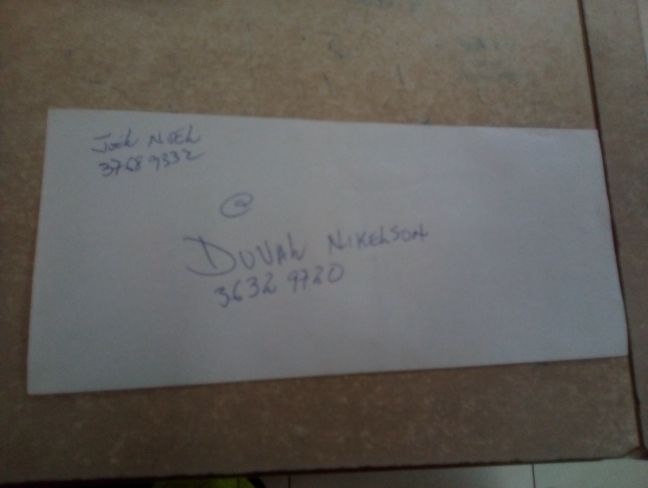 Joël NOEL
3768 9332
@
DUVAL NIKELSON
3632 9720